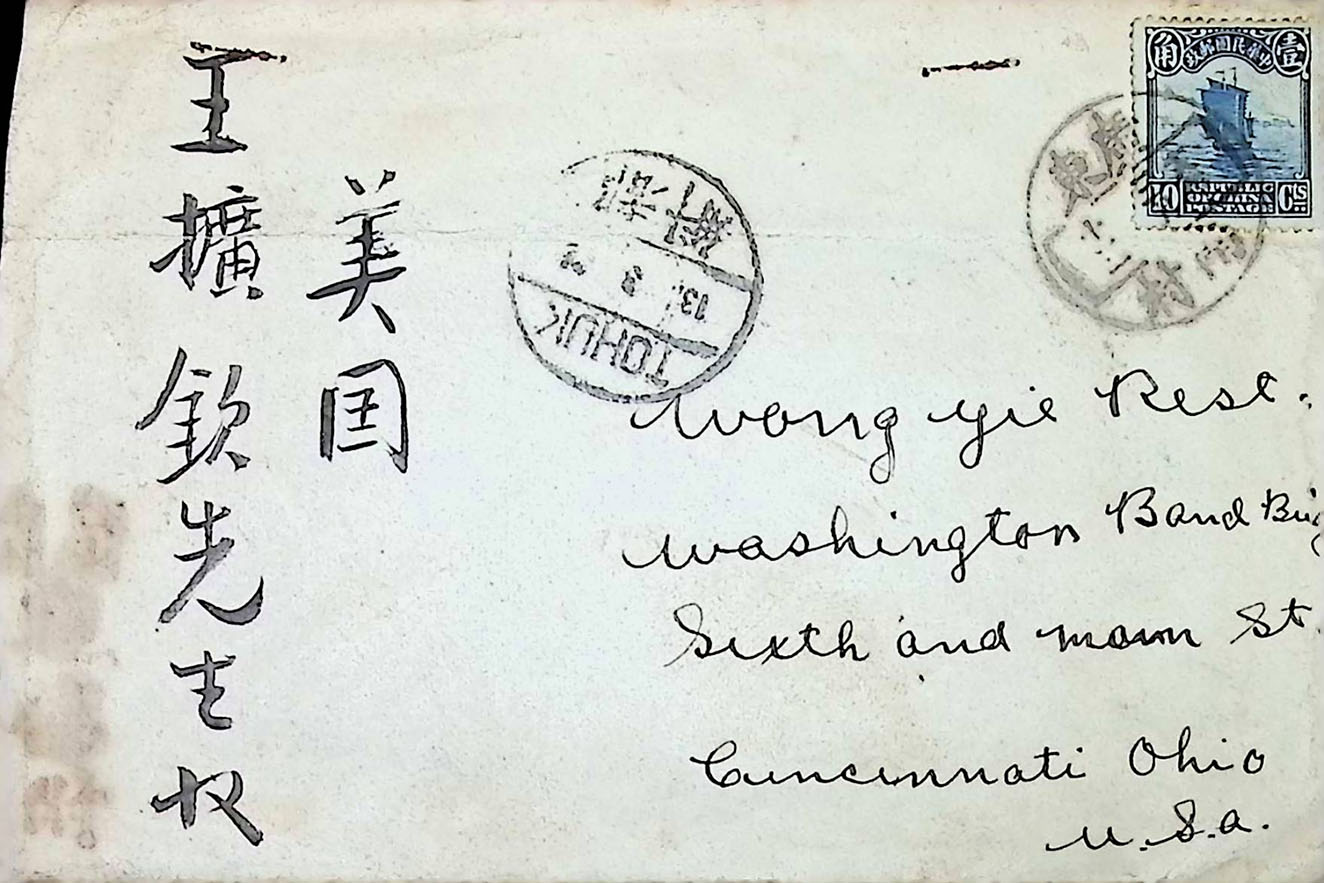 角 中華民國郵政 壹
10 REPUBLIC OF CHINA POSTAGE Cts
廣東
村
TOHUK
13. 3
美国
王擴欽先生收
Wong Yie Rest.
Washington Band
Sixth and main St.
Cincinnati Ohio
U.S.A.